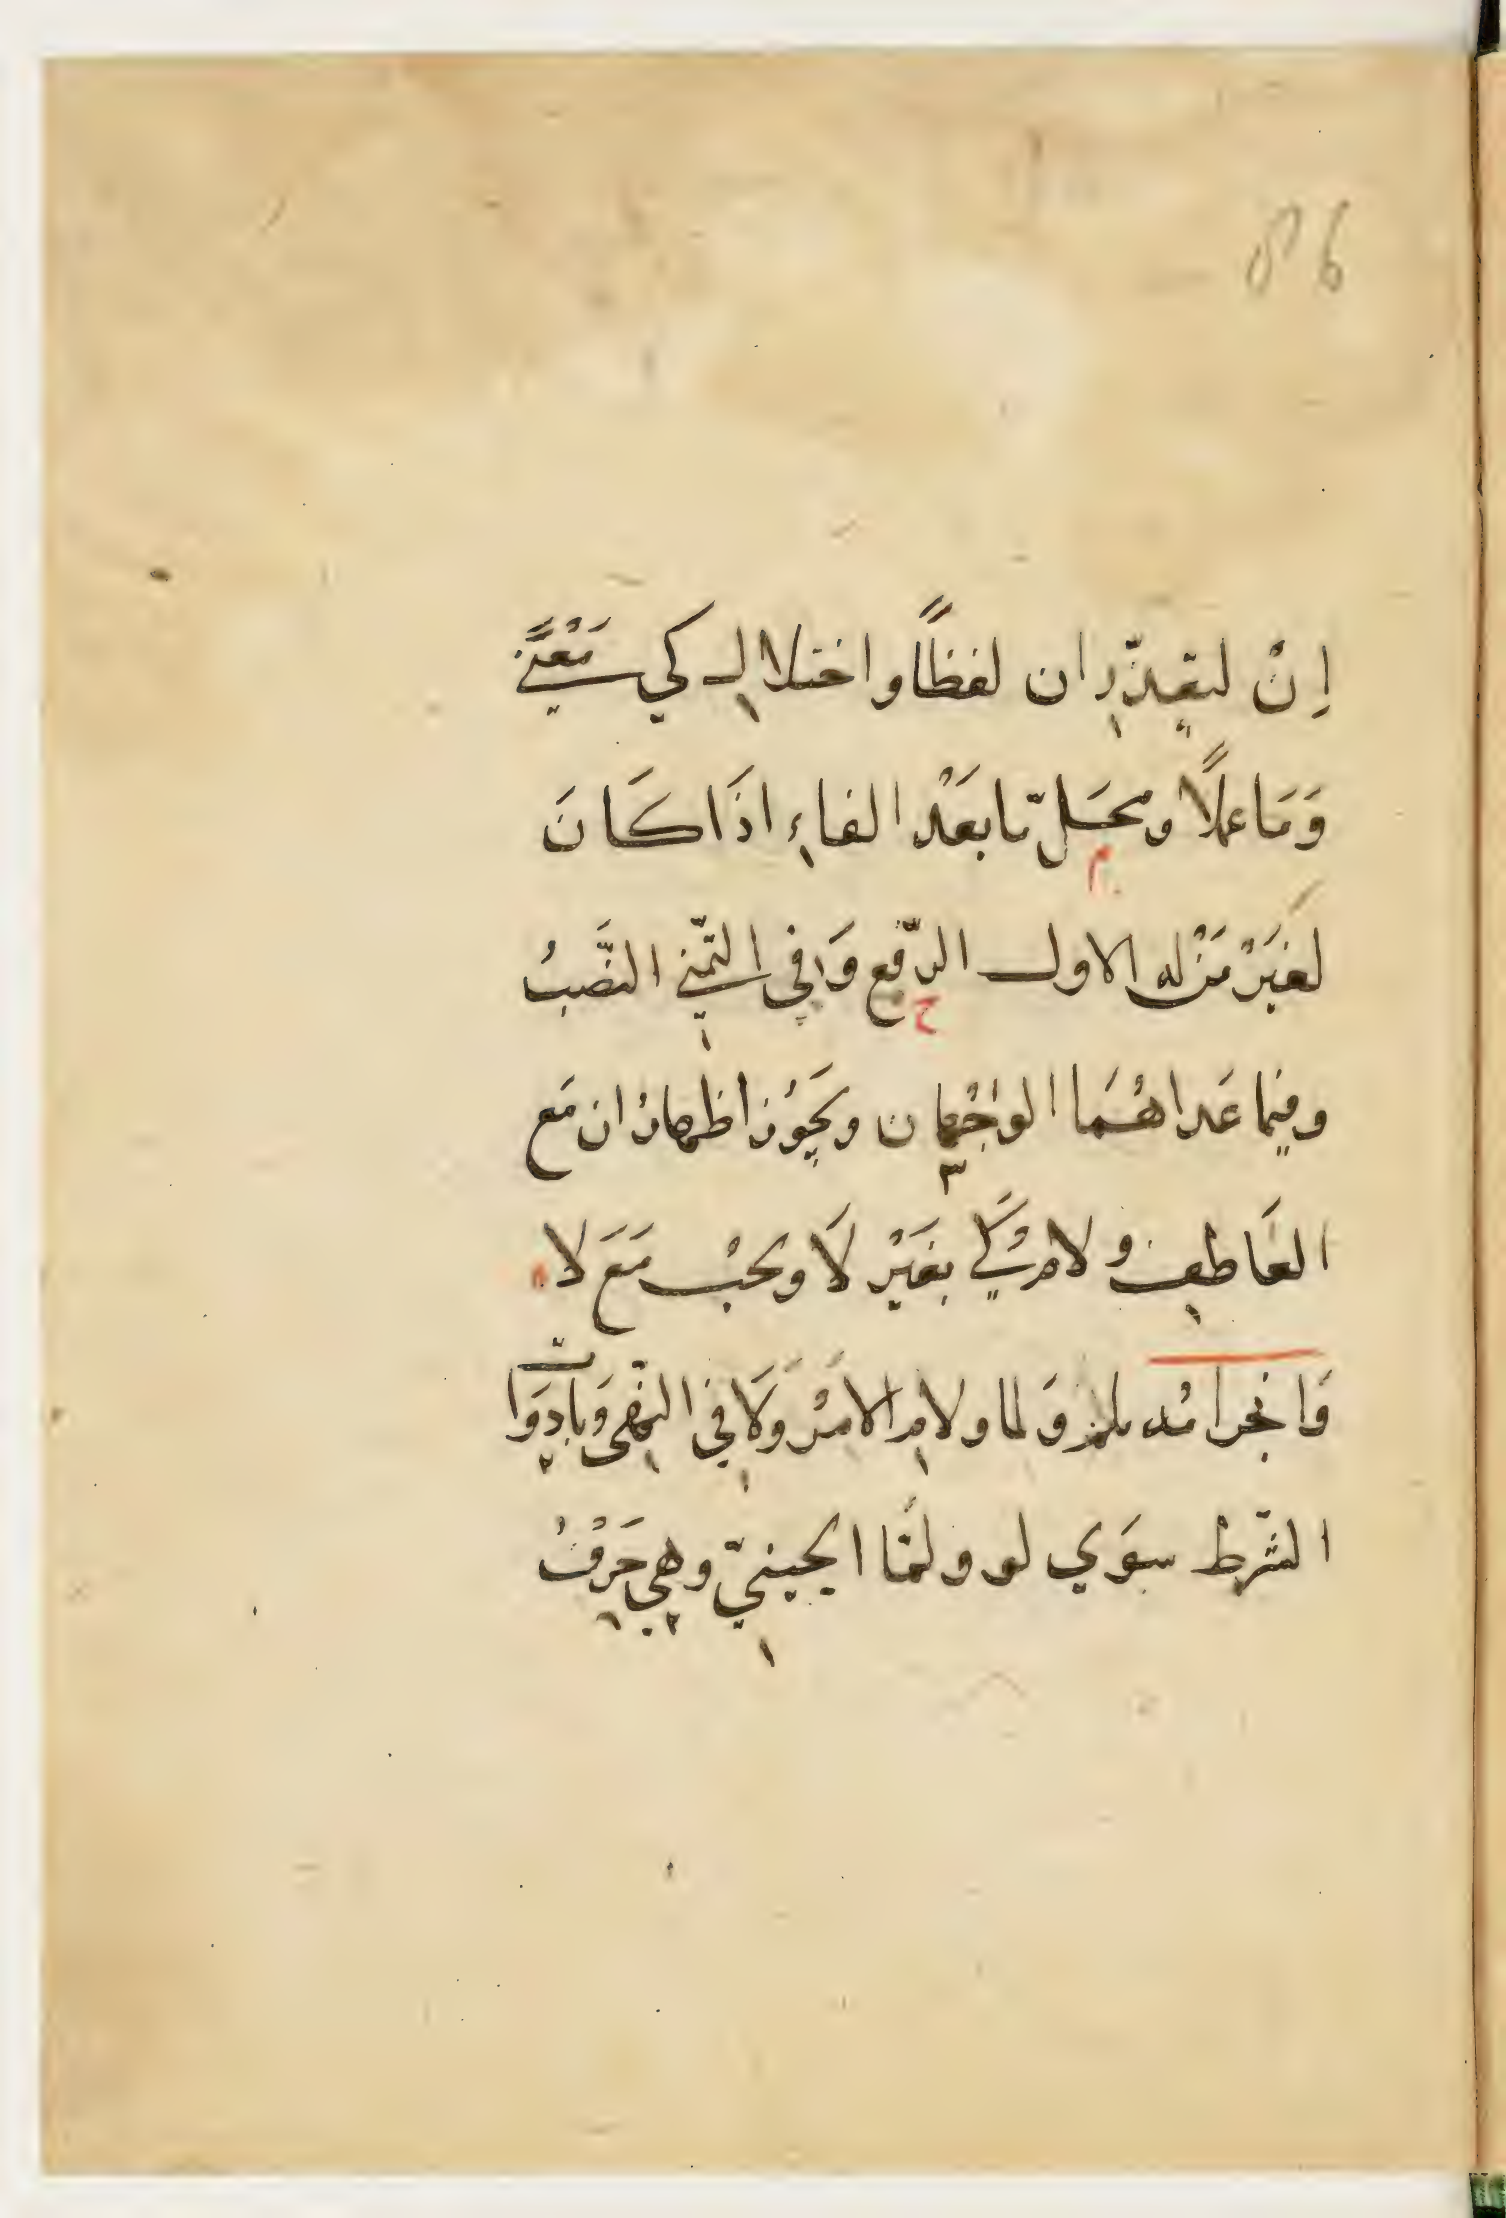 86
اِنْ لتعذّر ان لفظًا واختلال كي معنًى
وَمَا عملًا ومحلّ ما بعْد الفاءِ اذَا كَانَ
لغيَرْ مَنْ له الاول الرّفع وَفي التّمني النصَّبُ
وفيما عَداهُمَا الوجْهان ويَجوُز اظهارُ ان مَع
العَاطف ولام كَيْ بغيَرْ لَا ويجبْ مَعَ لا
وَانجرامُه بلم وَلما ولام الامَرْ وَلَا في النّهى وَبادوَات
الشّرط سِوَي لو ولمّا الحينيّ وهي حَرْفُ